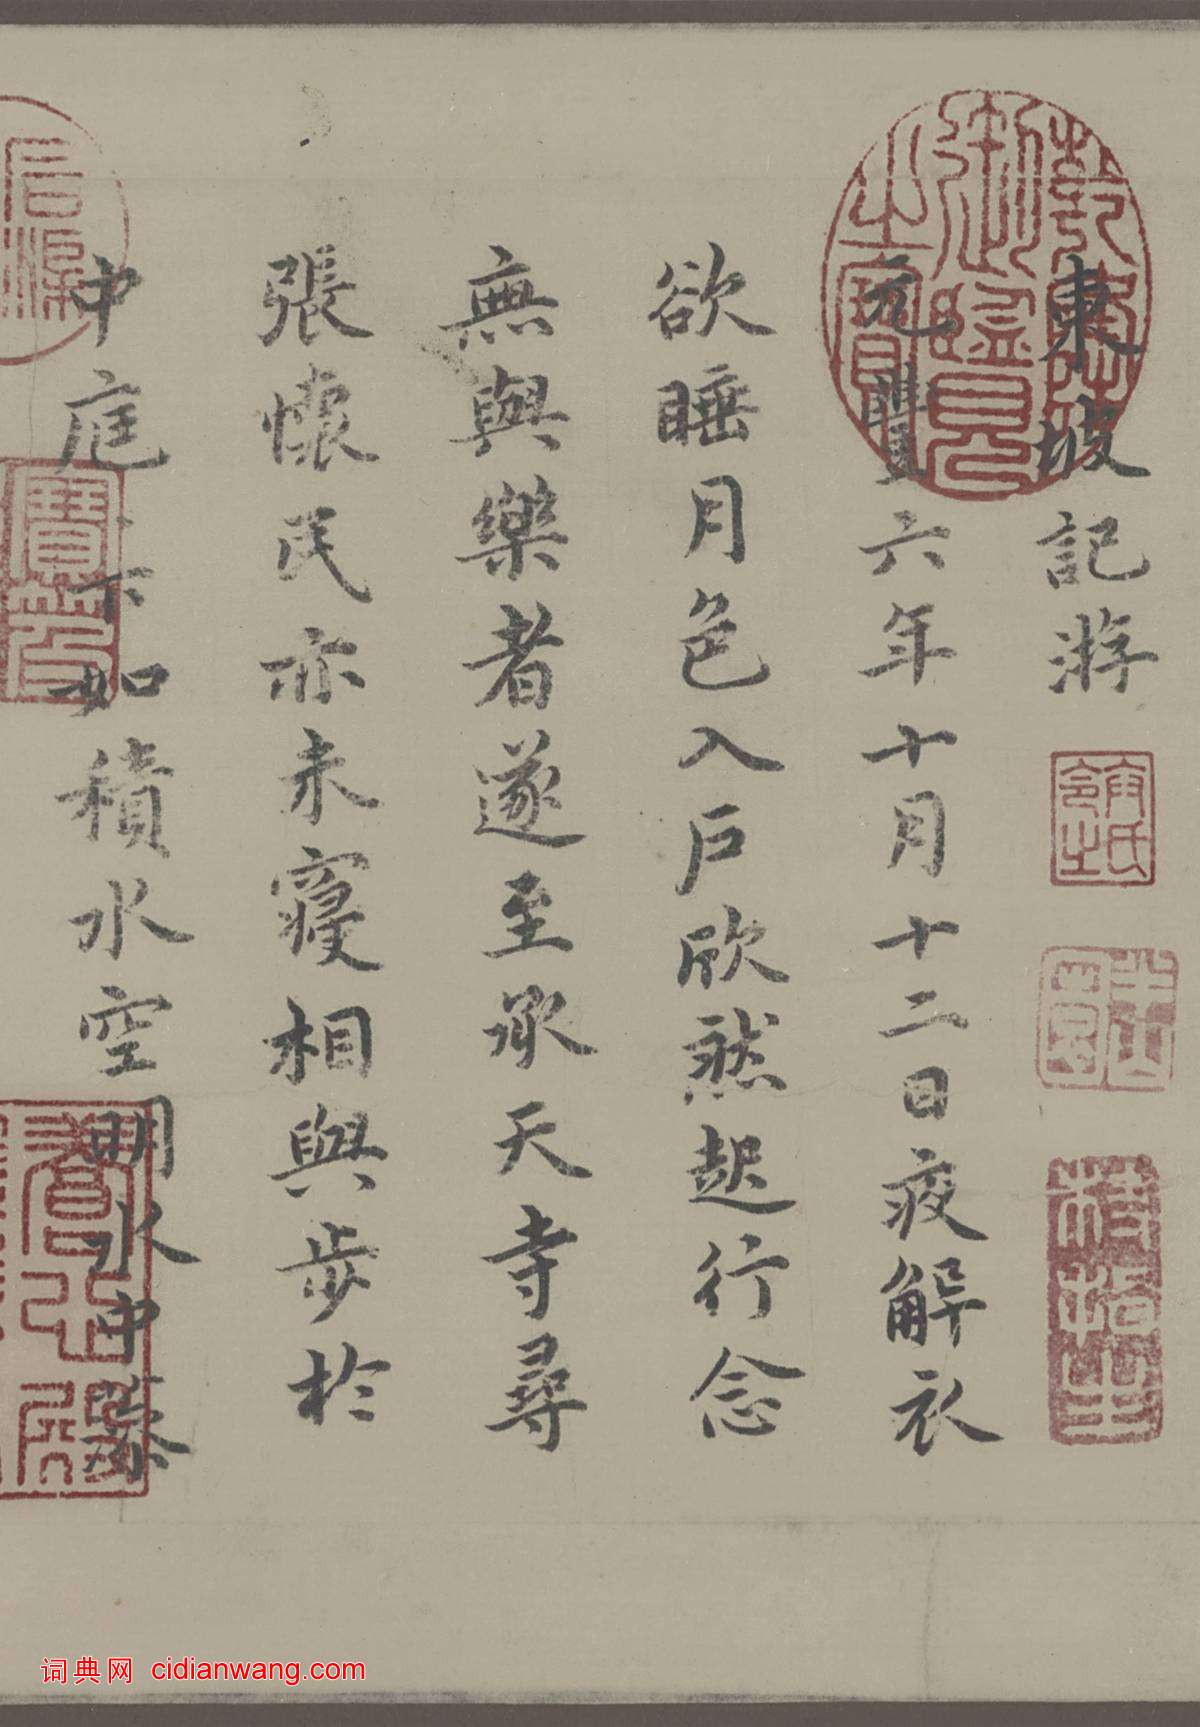 東坡記游
元豐六年十月十二日夜解衣
欲睡月色入戶欣然起行念
無與樂者遂至承天寺尋
張懷民亦未寢相與步於
中庭〻下如積水空明水中藻
乾隆御覽之寶
词典网 cidianwang.com